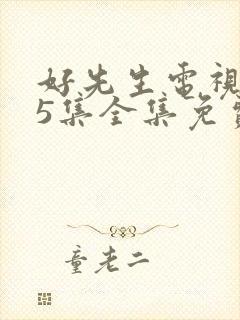 好先生電視
5集全集免費
童老二